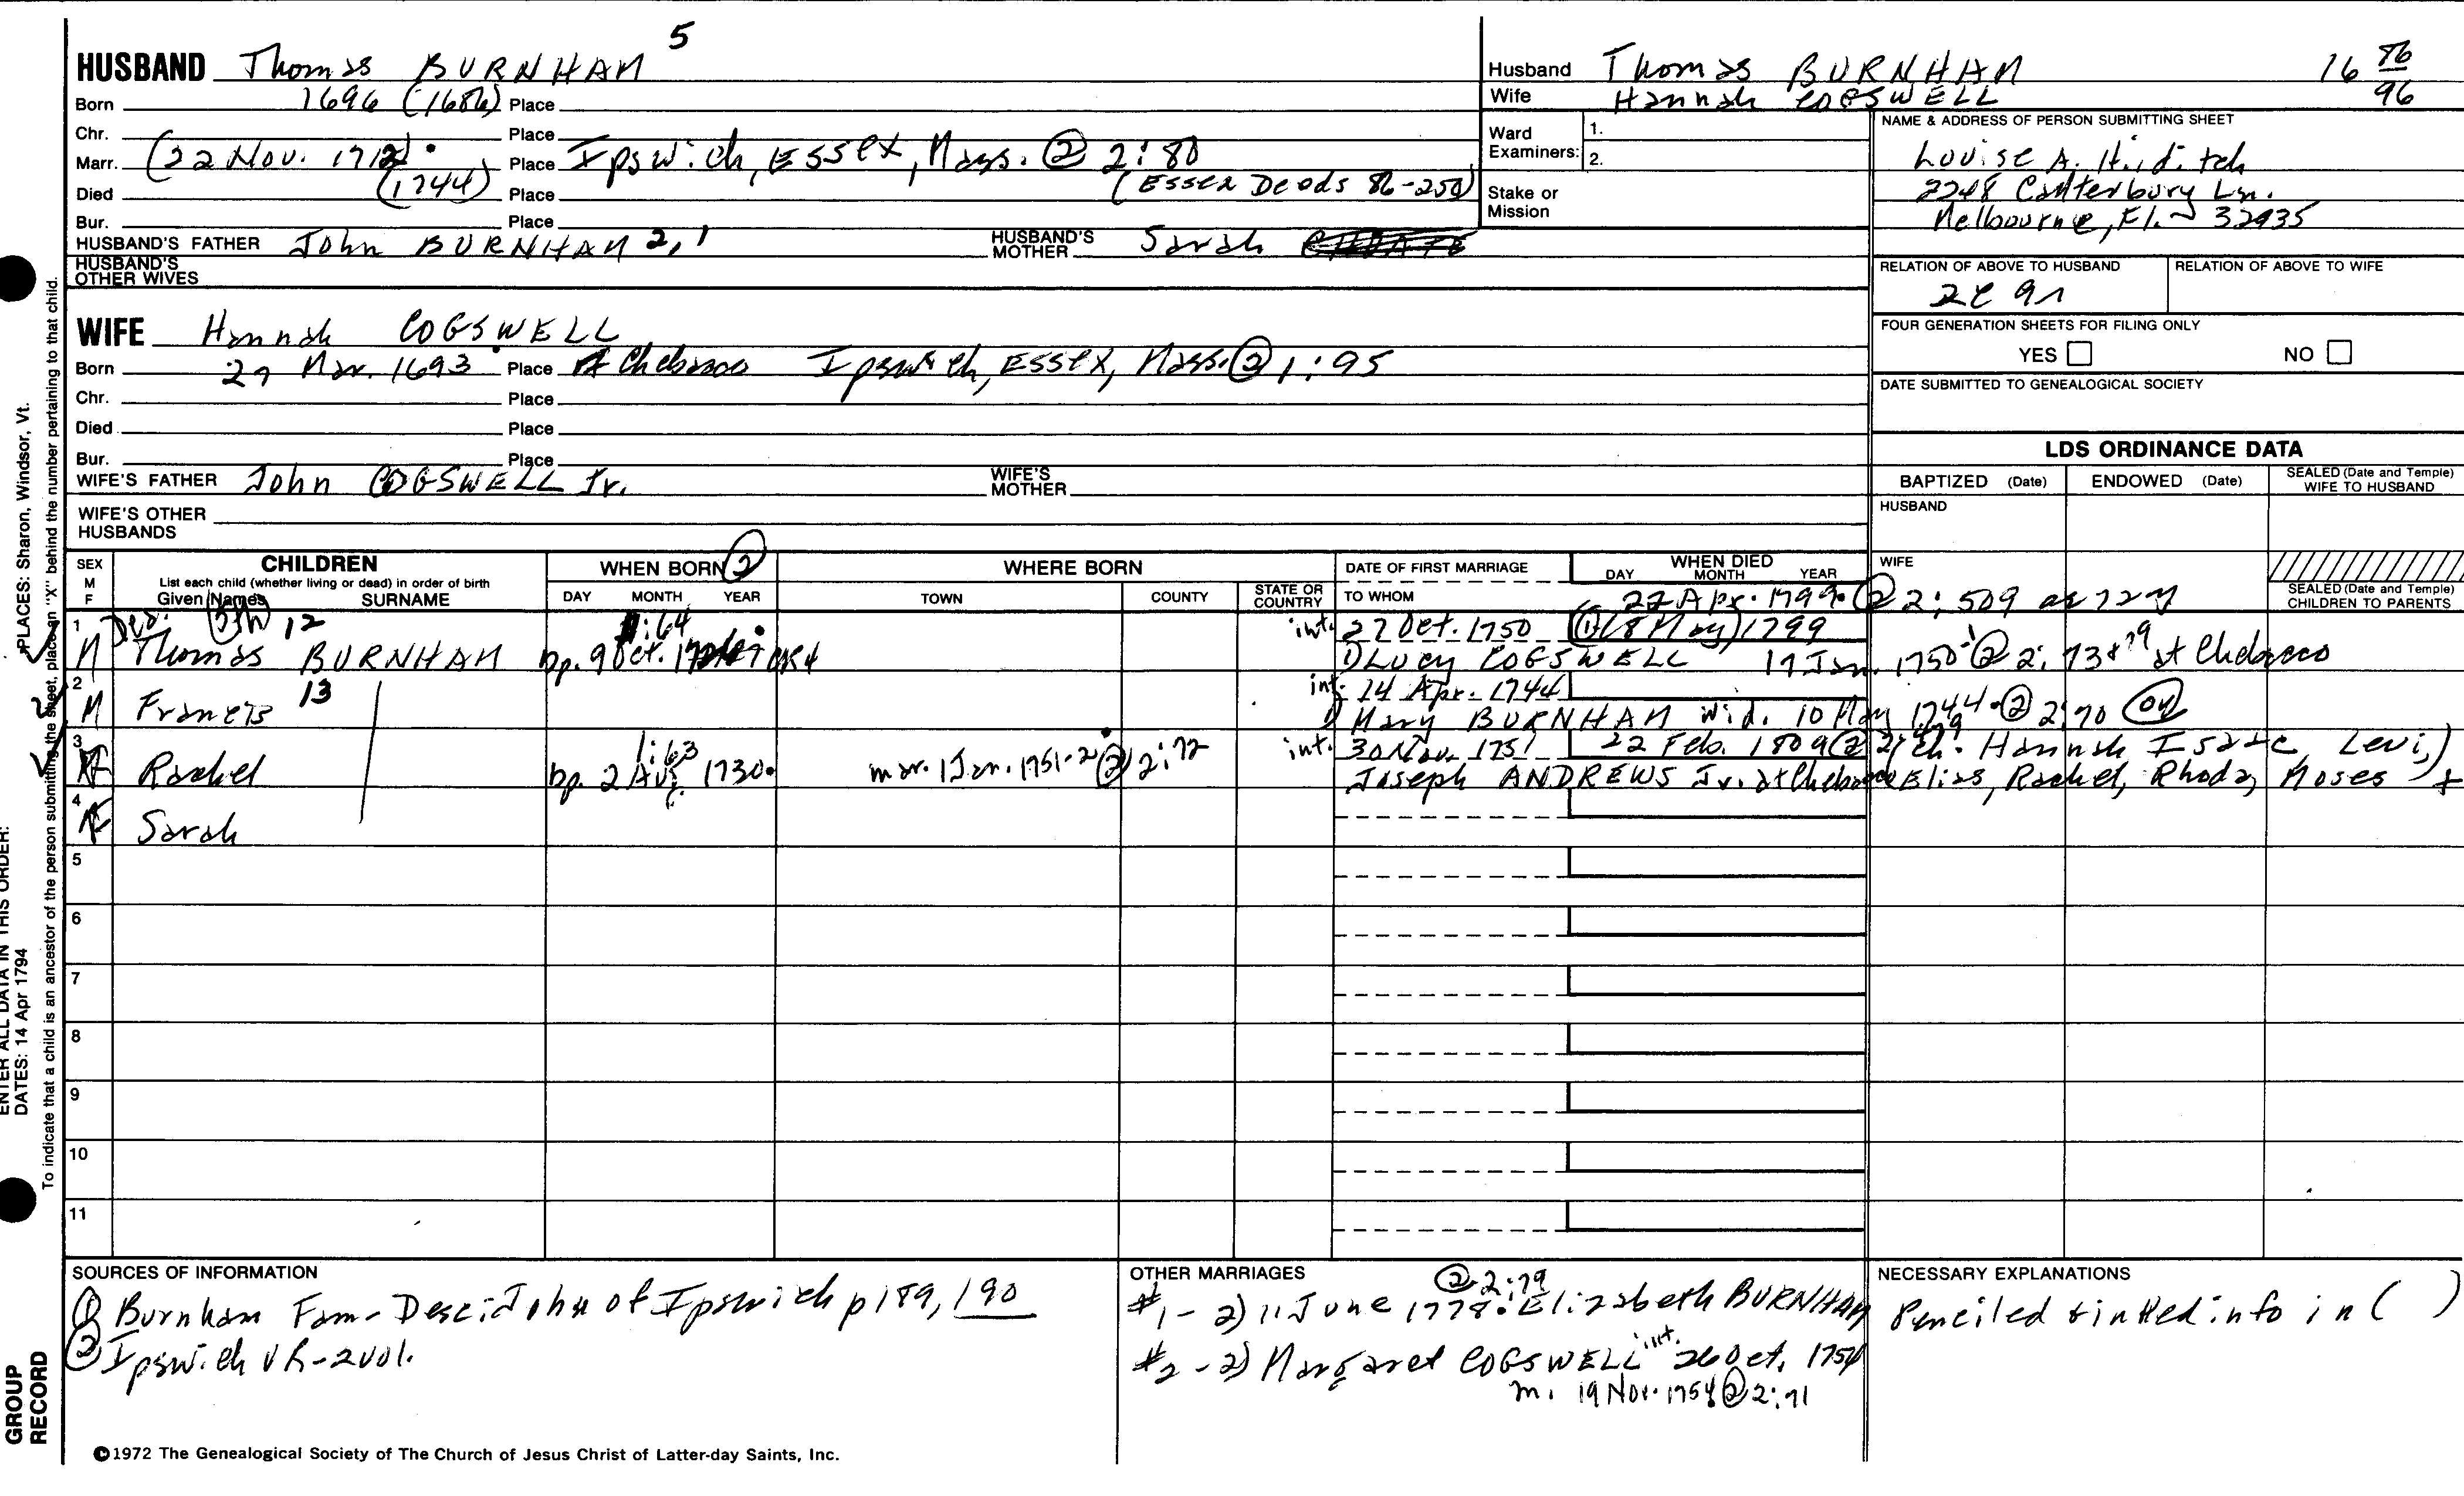 5
HUSBAND Thomas BURNHAM
Born 1696 (1686) Place
Chr. Place
Marr. (22 Nov. 1712) Place Ipswich, Essex, Mass. @ 2:80
Died (1744) Place (Essex Deeds 86-250)
Bur. Place
HUSBAND'S FATHER John BURNHAM 2, 1 HUSBAND'S MOTHER Sarah
HUSBAND'S OTHER WIVES
WIFE Hannah COGSWELL
Born 27 Mar. 1693 Place Chebacco Ipswich, Essex, Mass. ② 1:95
Chr. Place
Died Place
Bur. Place
WIFE'S FATHER John COGSWELL Jr. WIFE'S MOTHER
WIFE'S OTHER HUSBANDS
Husband Thomas BURNHAM 16 86/96
Wife Hannah COGSWELL
Ward Examiners: 1.
2.
Stake or Mission
NAME & ADDRESS OF PERSON SUBMITTING SHEET
Louise A. Hilditch
2248 Canterbury Ln.
Melbourne, Fl. 32935
RELATION OF ABOVE TO HUSBAND RELATION OF ABOVE TO WIFE
2C 9r
FOUR GENERATION SHEETS FOR FILING ONLY
YES NO
DATE SUBMITTED TO GENEALOGICAL SOCIETY
LDS ORDINANCE DATA
BAPTIZED (Date) ENDOWED (Date) SEALED (Date and Temple) WIFE TO HUSBAND
HUSBAND
WIFE
SEALED (Date and Temple) CHILDREN TO PARENTS
SEX M F
CHILDREN
List each child (whether living or dead) in order of birth
Given Names SURNAME
WHEN BORN ②
DAY MONTH YEAR
WHERE BORN
TOWN COUNTY STATE OR COUNTRY
DATE OF FIRST MARRIAGE
TO WHOM
WHEN DIED
DAY MONTH YEAR
22 Apr. 1799. ② 2:509 ae 72y
1 Dea. 5th 12 1:64 int. 27 Oct. 1750 ① (18 May) 1799
M Thomas BURNHAM bp. 9 Oct. 1) Lucy COGSWELL 17 Jan. 1750-1 ② 2:73 + 79 at Chebacco
2 13 int. 14 Apr. 1744
M Francis 1) Mary BURNHAM wid. 10 May 1744. ② 2:70
3 1:63 int. 30 Nov. 1751 22 Feb. 1809 ch: Hannah Isaac, Levi,
F Rachel bp. 2 Aug. 1730. mar. 1 Jan. 1751-2 ② 2:72 Joseph ANDREWS Jr. at Chebacco Elias, Rachel, Rhoda, Moses +
4
F Sarah
5
6
7
8
9
10
11
SOURCES OF INFORMATION
① Burnham Fam- Desc. John of Ipswich p 189, 190
② Ipswich VR-2vol.
OTHER MARRIAGES
② 2:79
#1 - 2) 11 June 1778. Elizabeth BURNHAM
#2 - 2) Margaret COGSWELL int. 26 Oct. 1754
m. 19 Nov. 1754 ② 2:71
NECESSARY EXPLANATIONS
Penciled + inked info in ( )
©1972 The Genealogical Society of The Church of Jesus Christ of Latter-day Saints, Inc.
GROUP RECORD
ENTER ALL DATA IN THIS ORDER:
DATES: 14 Apr 1794
PLACES: Sharon, Windsor, Vt.
To indicate that a child is an ancestor of the person submitting the sheet, place an "X" behind the number pertaining to that child.